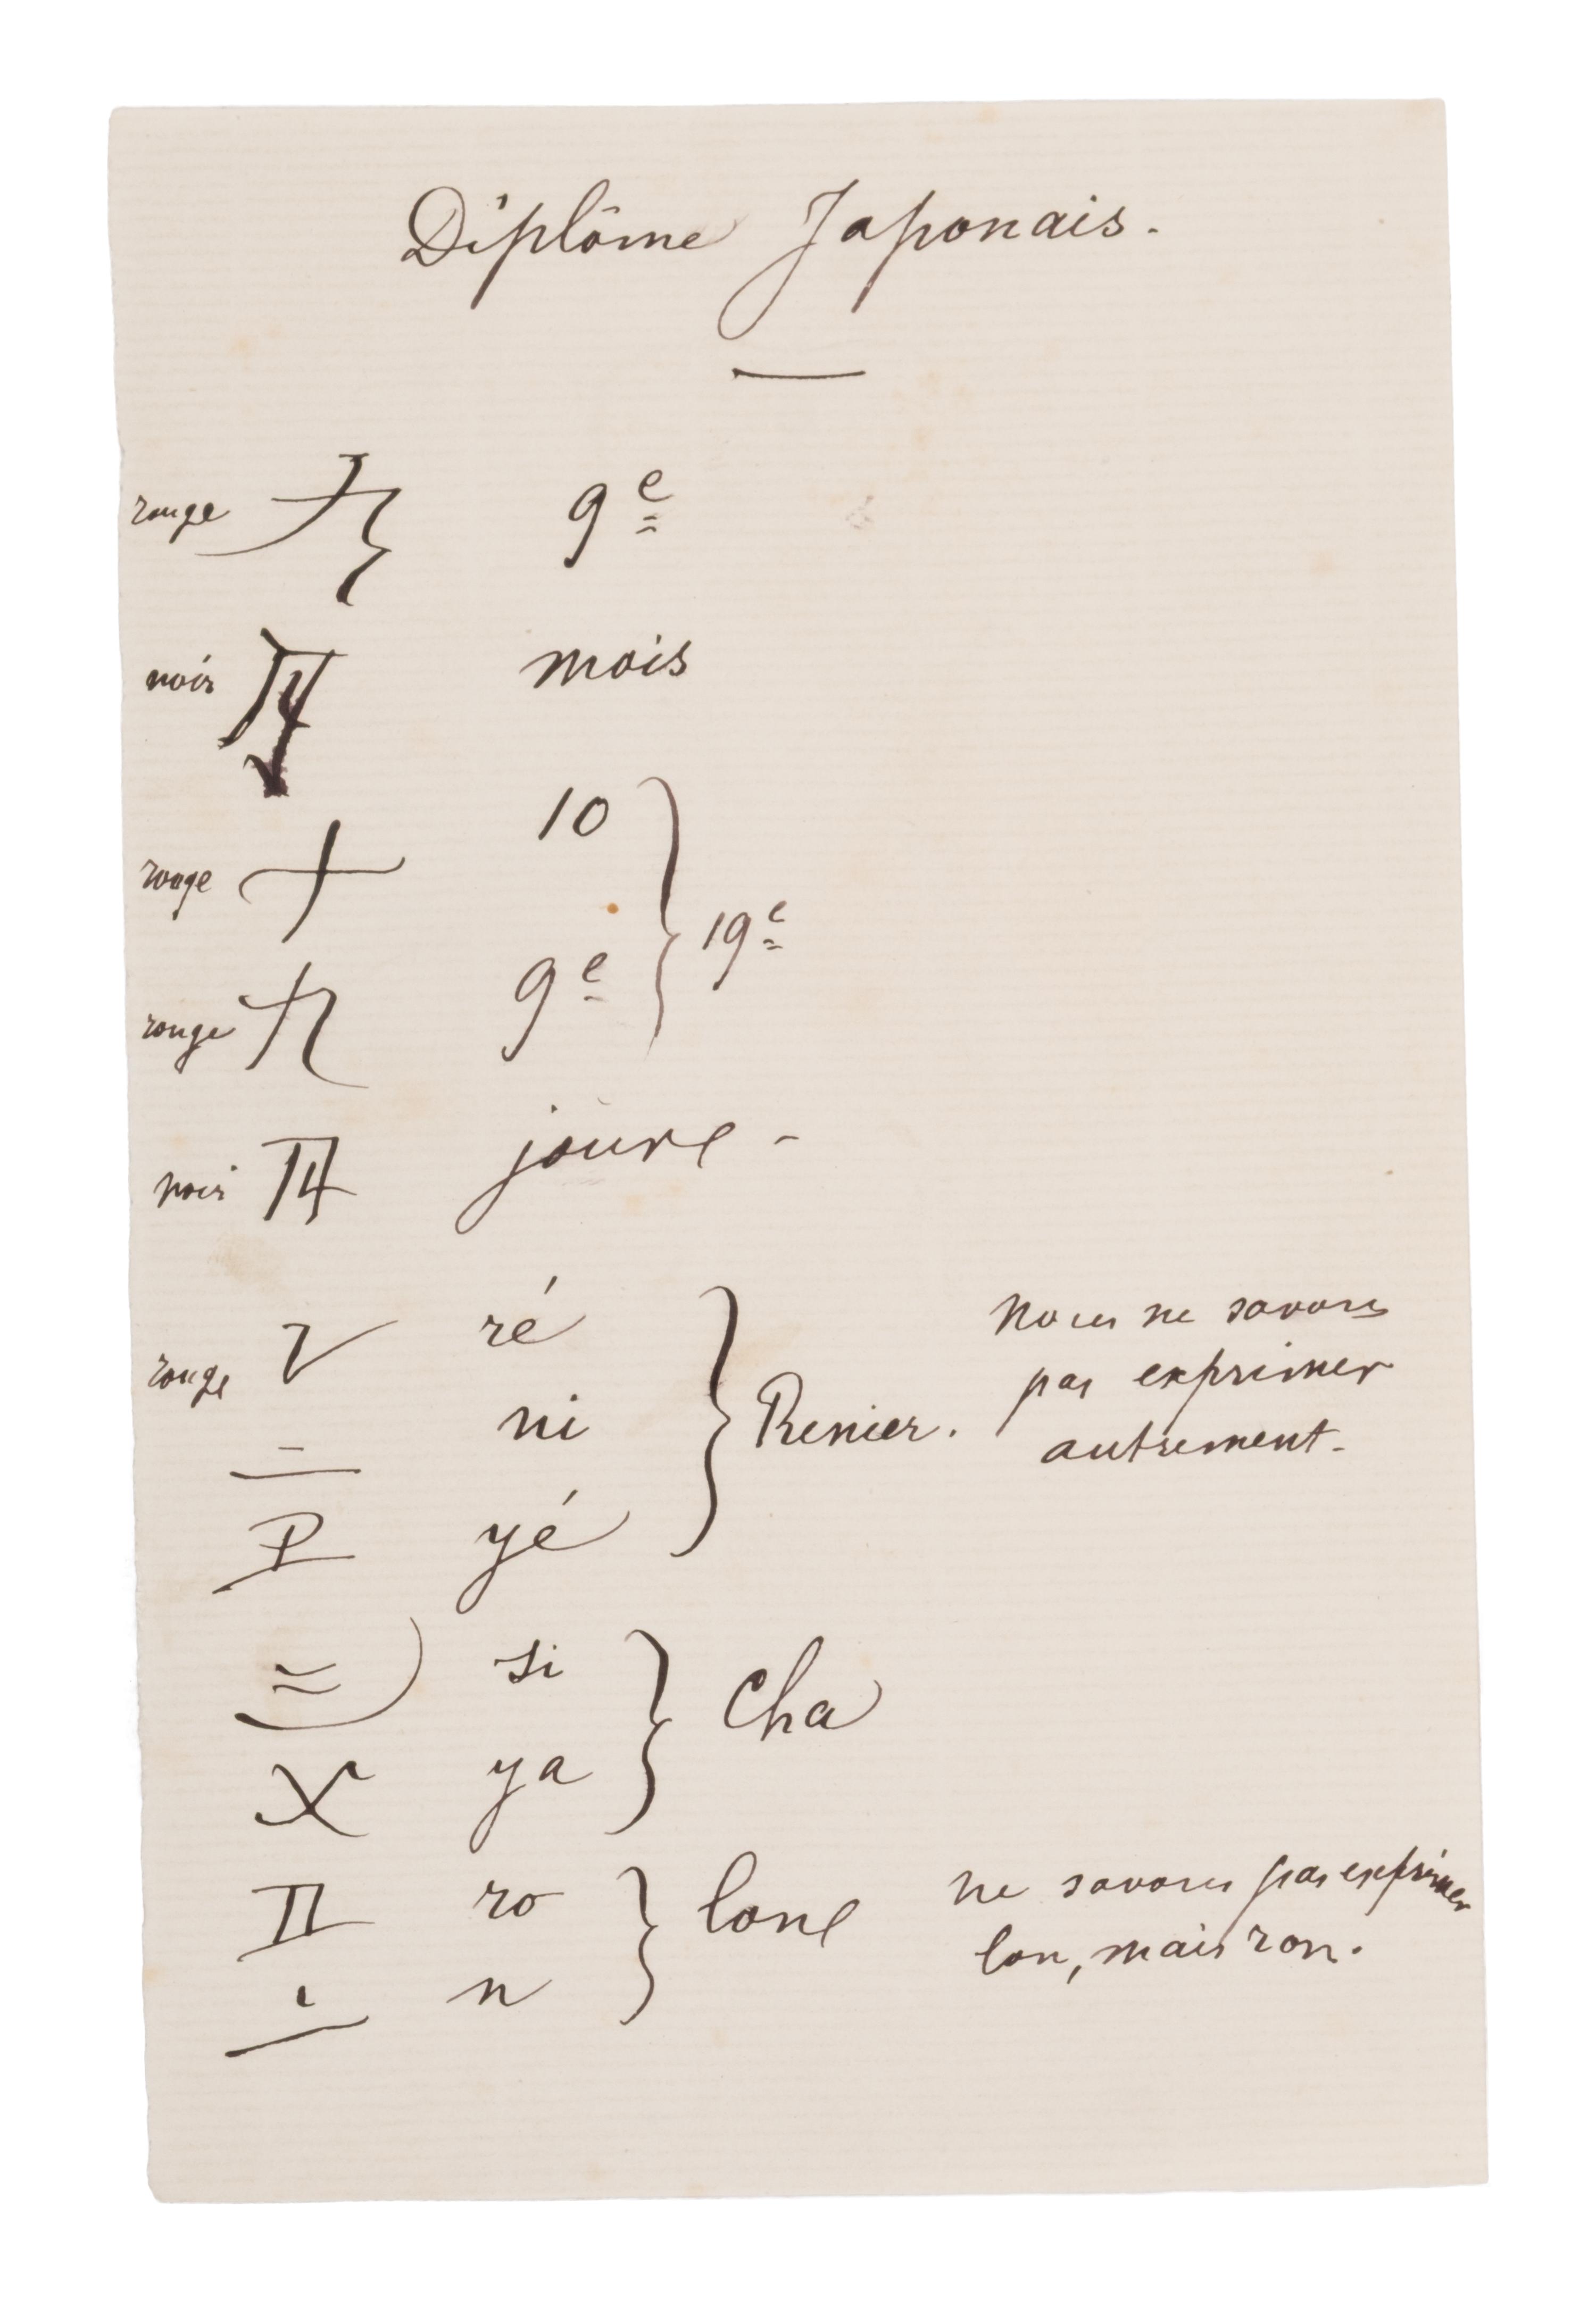 Diplôme Japonais.
rouge 九 9e
noir 月 mois
rouge 十 10
19e
rouge 九 9e
noir 日 jours -
レ ré
rouge
ニ ni Renier.
エ yé
Nous ne savons
pas exprimer
autrement.
シ si
Cha
ヤ ya
ロ ro
lons
ン n
ne savons pas exprimer
lon, mais ron.